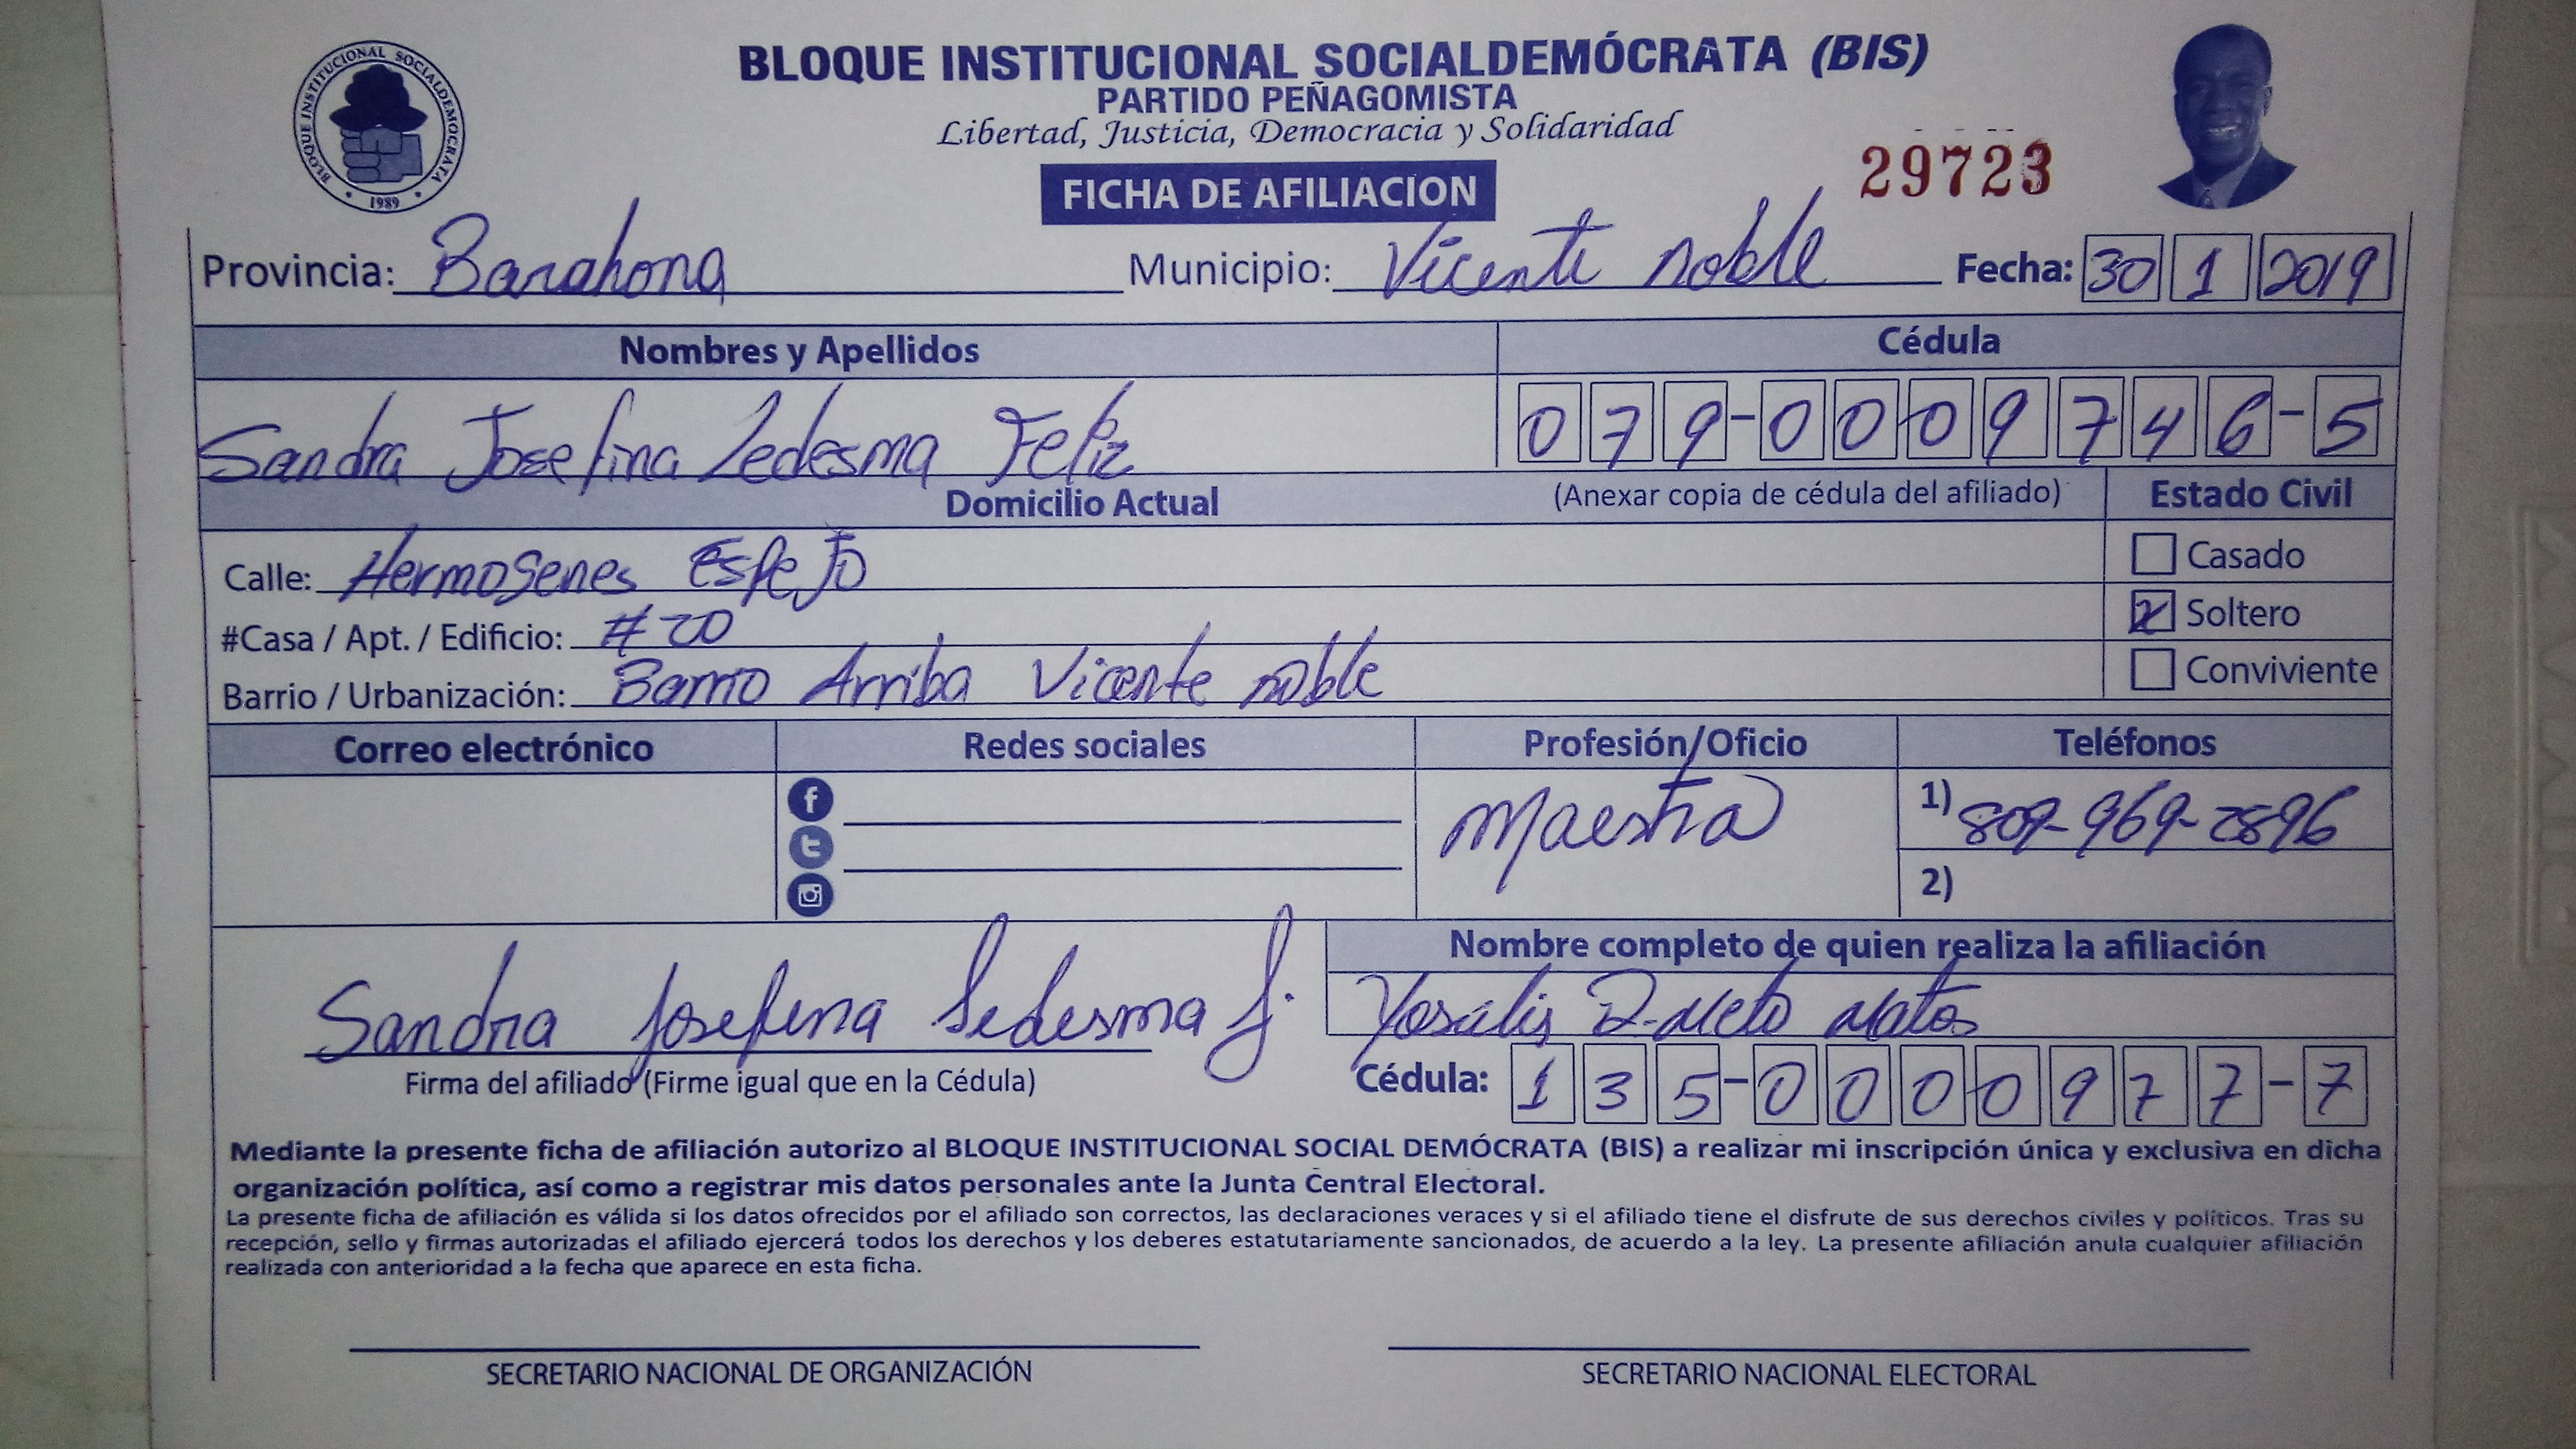 BLOQUE INSTITUCIONAL SOCIALDEMOCRATA
1989
BLOQUE INSTITUCIONAL SOCIALDEMÓCRATA (BIS)
PARTIDO PEÑAGOMISTA
Libertad, Justicia, Democracia y Solidaridad
29723
FICHA DE AFILIACION
Provincia: Barahona Municipio: Vicente noble Fecha: 30 1 2019
Nombres y Apellidos Cédula
Sandra Josefina Ledesma Feliz 079-0009746-5
Domicilio Actual (Anexar copia de cédula del afiliado) Estado Civil
Calle: Hermosenes Espejo Casado
#Casa / Apt. / Edificio: #20 Soltero
Barrio / Urbanización: Barrio Arriba Vicente noble Conviviente
Correo electrónico Redes sociales Profesión/Oficio Teléfonos
Maestra 1) 809-969-2896
2)
Nombre completo de quien realiza la afiliación
Sandra Josefina Ledesma f. Yosalis D. Melo Matos
Firma del afiliado (Firme igual que en la Cédula) Cédula: 135-0000977-7
Mediante la presente ficha de afiliación autorizo al BLOQUE INSTITUCIONAL SOCIAL DEMÓCRATA (BIS) a realizar mi inscripción única y exclusiva en dicha
organización política, así como a registrar mis datos personales ante la Junta Central Electoral.
La presente ficha de afiliación es válida si los datos ofrecidos por el afiliado son correctos, las declaraciones veraces y si el afiliado tiene el disfrute de sus derechos civiles y políticos. Tras su
recepción, sello y firmas autorizadas el afiliado ejercerá todos los derechos y los deberes estatutariamente sancionados, de acuerdo a la ley. La presente afiliación anula cualquier afiliación
realizada con anterioridad a la fecha que aparece en esta ficha.
SECRETARIO NACIONAL DE ORGANIZACIÓN SECRETARIO NACIONAL ELECTORAL